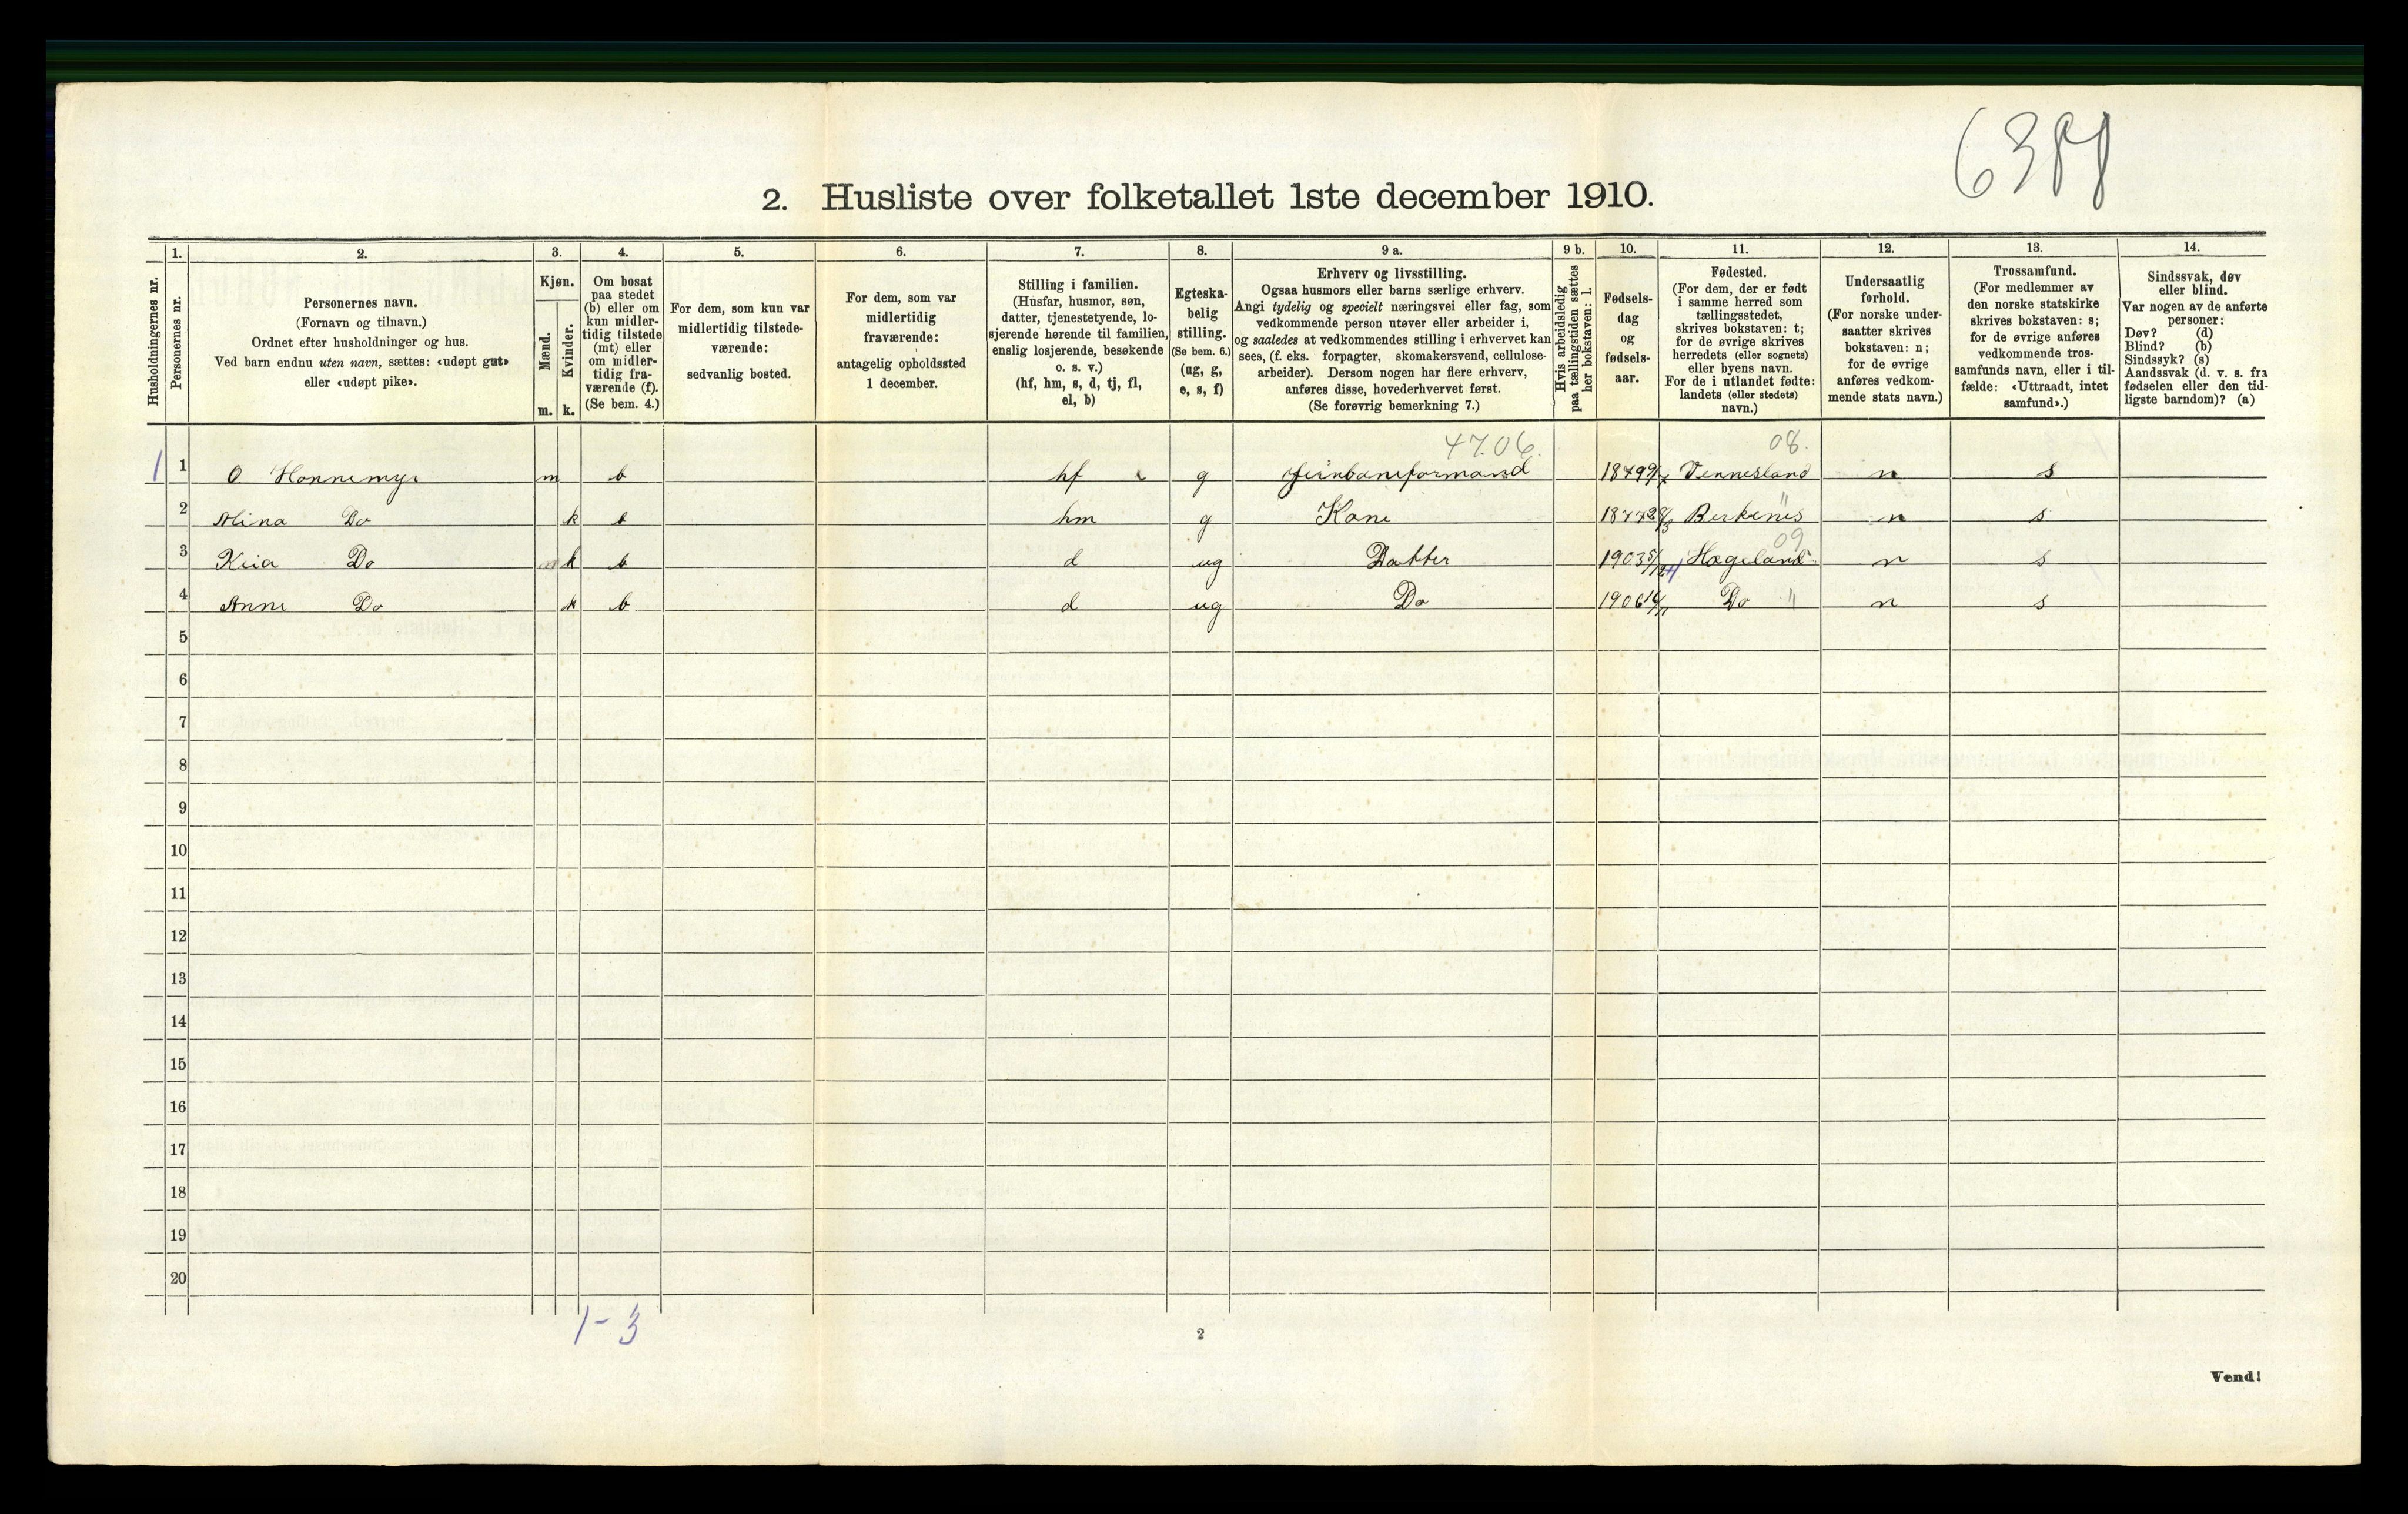 6388
2. Husliste over folketallet 1ste december 1910.
Husholdningernes nr.
1.
Personernes nr.
2.
Personernes navn.
(Fornavn og tilnavn.)
Ordnet efter husholdninger og hus.
Ved barn endnu uten navn, sættes: «udøpt gut»
eller «udøpt pike».
3.
Kjøn.
Mænd.
m.
Kvinder.
k.
4.
Om bosat
paa stedet
(b) eller om
kun midler-
tidig tilstede
(mt) eller
om midler-
tidig fra-
værende (f).
(Se bem. 4.)
5.
For dem, som kun var
midlertidig tilstede-
værende:
sedvanlig bosted.
6.
For dem, som var
midlertidig
fraværende:
antagelig opholdssted
1 december.
7.
Stilling i familien.
(Husfar, husmor, søn,
datter, tjenestetyende, lo-
sjerende hørende til familien,
enslig losjerende, besøkende
o. s. v.)
(hf, hm, s, d, tj, fl,
el, b)
8.
Egteska-
belig
stilling.
(Se bem. 6.)
(ug, g,
e, s, f)
9 a.
Erhverv og livsstilling.
Ogsaa husmors eller barns særlige erhverv.
Angi tydelig og specielt næringsvei eller fag, som
vedkommende person utøver eller arbeider i,
og saaledes at vedkommendes stilling i erhvervet kan
sees, (f. eks. forpagter, skomakersvend, cellulose-
arbeider). Dersom nogen har flere erhverv,
anføres disse, hovederhvervet først.
(Se forøvrig bemerkning 7.)
9 b.
Hvis arbeidsledig
paa tællingstiden sættes
her bokstaven: l.
10.
Fødsels-
dag
og
fødsels-
aar.
11.
Fødested.
(For dem, der er født
i samme herred som
tællingsstedet,
skrives bokstaven: t;
for de øvrige skrives
herredets (eller sognets)
eller byens navn.
For de i utlandet fødte:
landets (eller stedets)
navn.)
12.
Undersaatlig
forhold.
(For norske under-
saatter skrives
bokstaven: n;
for de øvrige
anføres vedkom-
mende stats navn.)
13.
Trossamfund.
(For medlemmer av
den norske statskirke
skrives bokstaven: s;
for de øvrige anføres
vedkommende tros-
samfunds navn, eller i til-
fælde: «Uttraadt, intet
samfund».)
14.
Sindssvak, døv
eller blind.
Var nogen av de anførte
personer:
Døv? (d)
Blind? (b)
Sindssyk? (s)
Aandssvak (d. v. s. fra
fødselen eller den tid-
ligste barndom)? (a)
47.06. 08.
1 1 O Honnemyr m b hf g Jernbaneformand 1879 Vennesland n s
2 Alina Do k b hm g Kone Berkenes " n s
09
3 Do k b d ug Datter 1903 5/12 Hægeland n s
4 Anne Do k b d ug Do 1906 16/11 Do " n s
5
6
7
8
9
10
11
12
13
14
15
16
17
18
19
20
1-3
2
Vend!